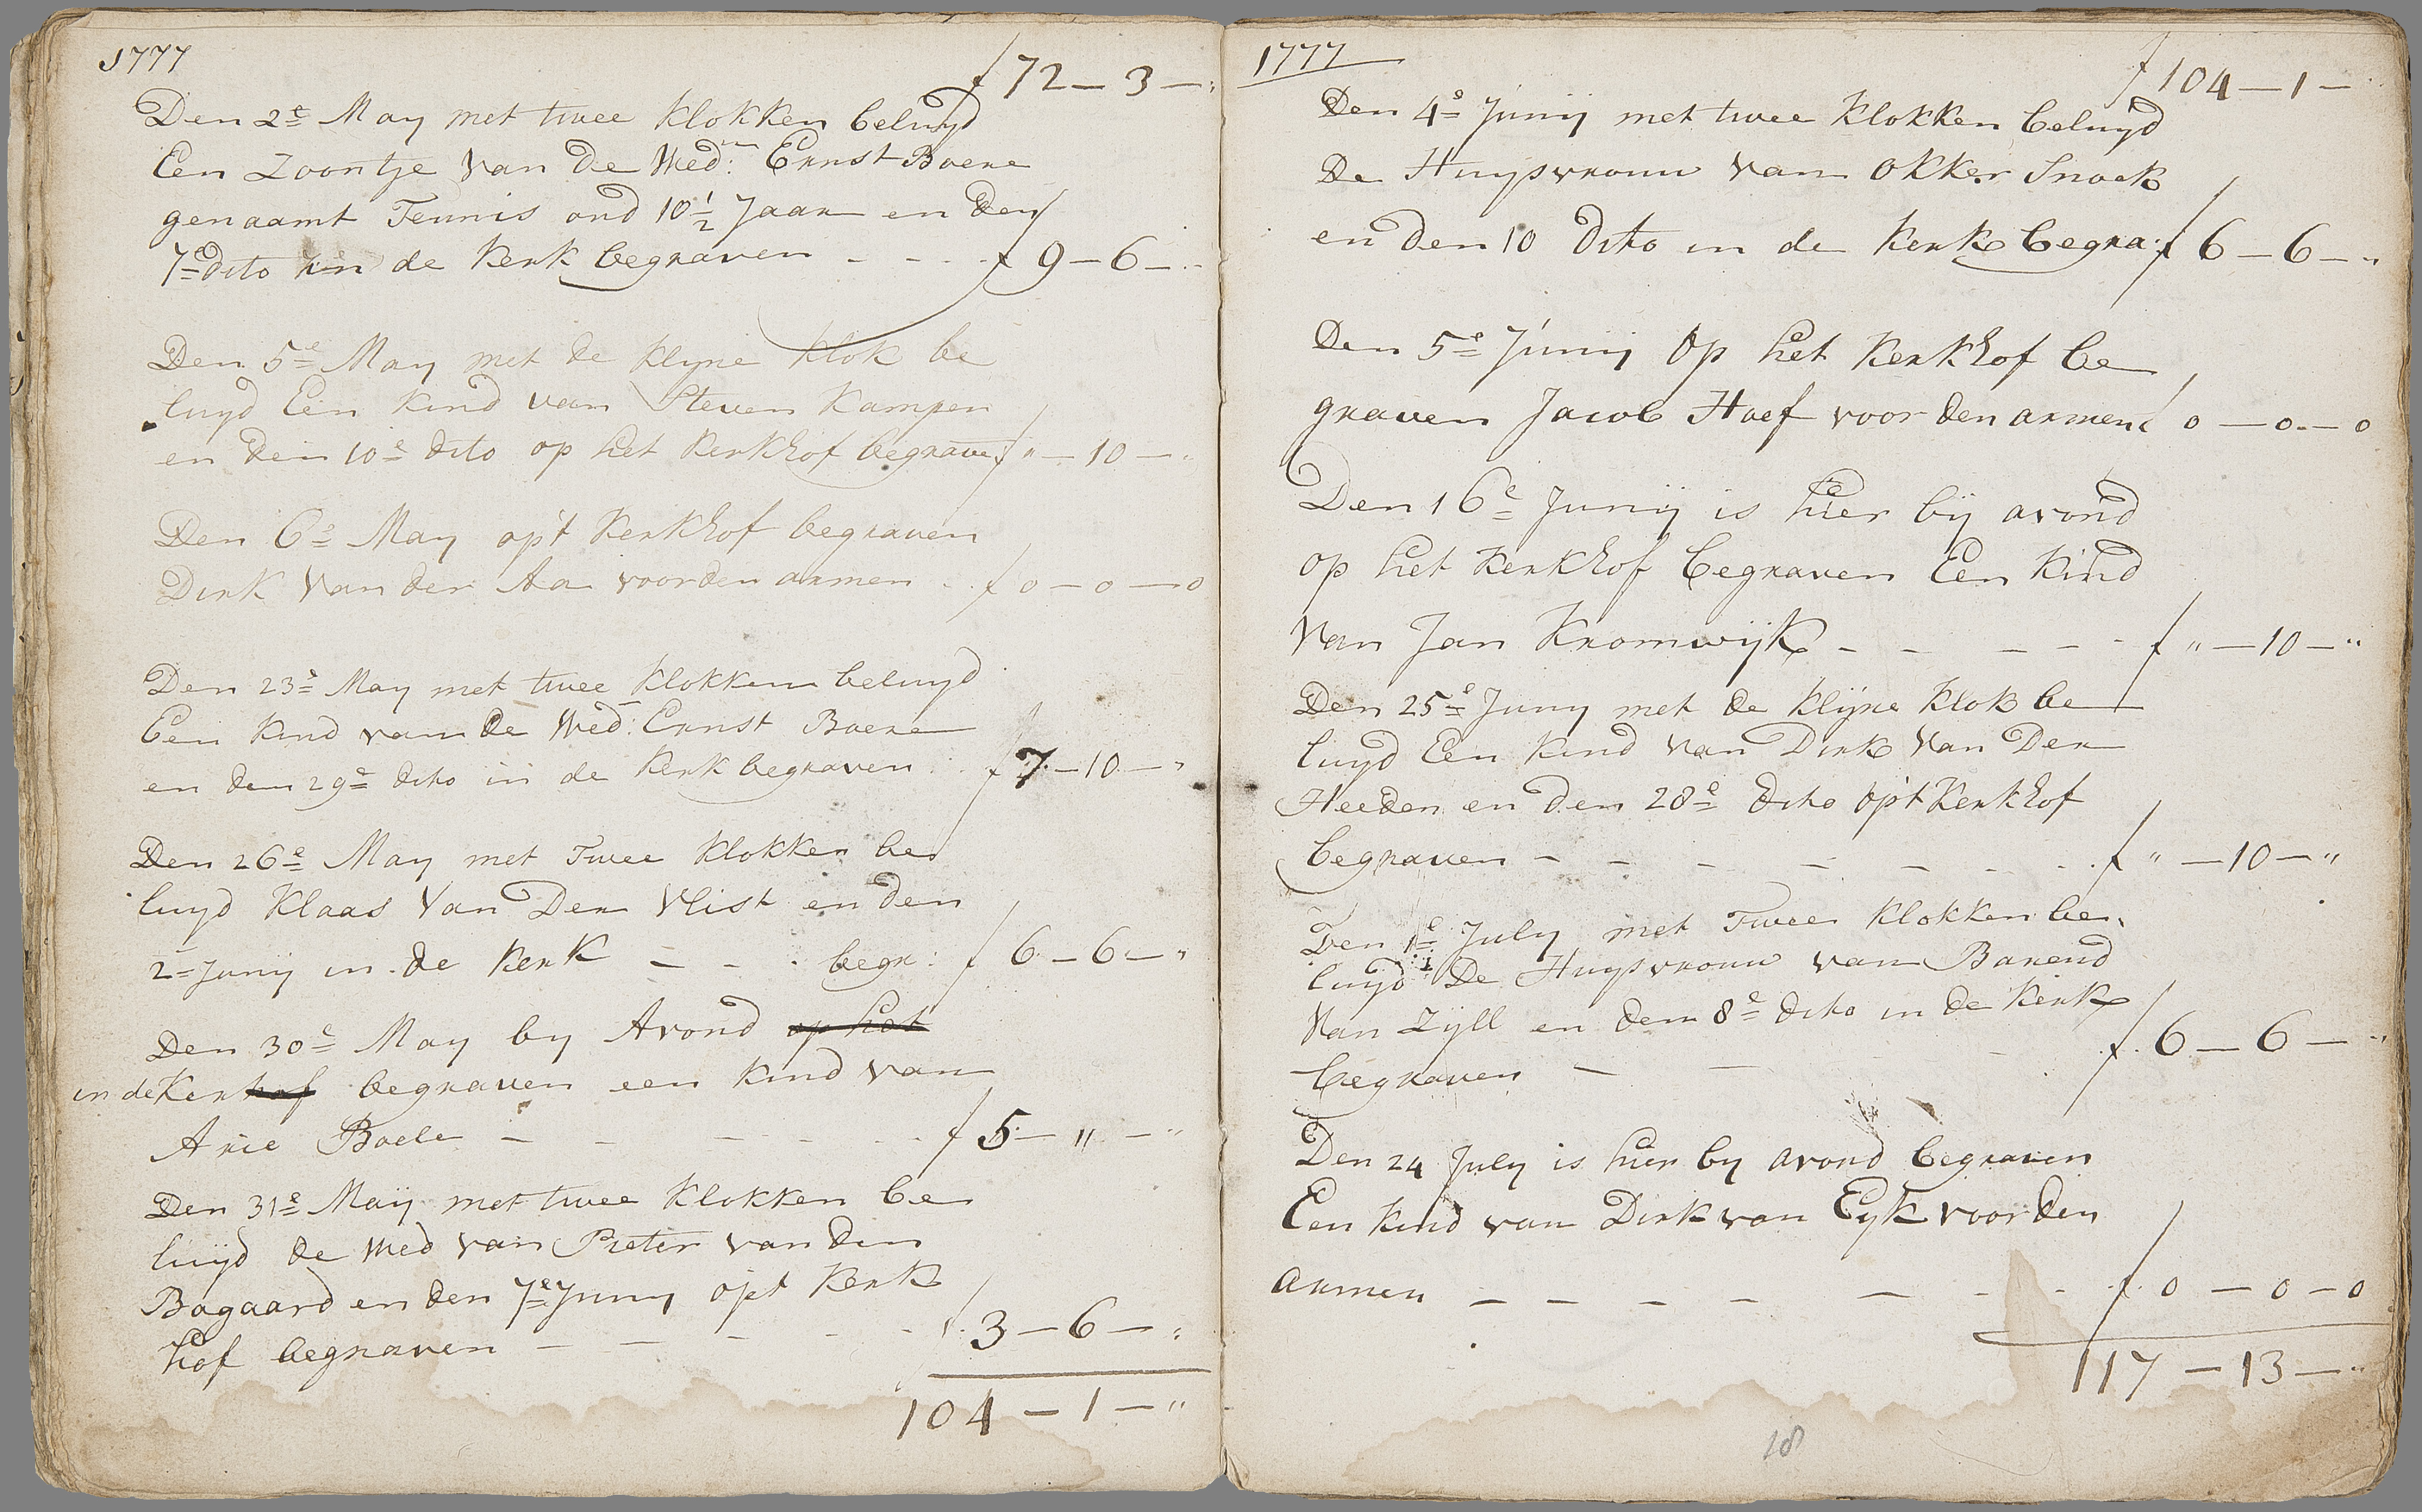 1777
ƒ 72 — 3 — "
Den 2e May met twee Klokken beluyd
Een Zoontje Van de Wed: Ernst Boere
genaamt Teunis oud 10 1/2 Jaar en den
7e dito in de Kerk begraven - - - ƒ 9 — 6 — "
Den 5e May met de Klyne Klok be
luyd Een Kind van Steven Kampen
en den 10e dito op het Kerkhof begraven ƒ " — 10 — "
Den 6e May op't Kerkhof begraven
Dirk Van der Aa voor den armen . . ƒ 0 — 0 — 0
Den 23e May met twee Klokken beluyd
Een Kind van de Wed: Ernst Boere
en den 29e dito in de Kerk begraven . . ƒ 7 — 10 — "
Den 26e May met Twee Klokken be
luyd Klaas Van Der Vlist en den
2e Junij in de Kerk — - . begr: ƒ 6 — 6 — "
Den 30e May by Avond op het
in de Kerkhof begraven een Kind van
Arie Boele — - - - - - ƒ 5 — " — "
Den 31e Maij met twee Klokken be
luijd de Wed van Pieter van den
Bogaard en den 7e Juny op't Kerk
hof begraven — — - - - ƒ 3 — 6 — "
104 — 1 — "
1777
ƒ 104 — 1 — "
Den 4e Junij met twee Klokken beluyd
De Huysvrouw van Okker Snoek
en den 10 dito in de Kerk begra: ƒ 6 — 6 — "
Den 5e Junij Op het Kerkhof be
graven Jacob Hoef voor den armen ƒ 0 — 0 — 0
Den 16e Junij is hier bij avond
op het Kerkhof begraven Een Kind
Van Jan Kromwijk - - - - - ƒ " — 10 — "
Den 25e Juny met de Klijne Klok be
luyd Een Kind Van Dirk Van Der
Heeden en den 28e dito op't Kerkhof
begraven - - - - - - - ƒ " — 10 — "
Den 1e July met Twee Klokken be
luyd De Huysvrouw van Barend
Van Zijll en den 8e dito in de Kerk
begraven — — - ƒ 6 — 6 — "
Den 24 July is hier by avond begraven
Een Kind van Dirk van Eyk voor den
armen — — — — — - - ƒ 0 — 0 — 0
117 — 13 — "
18